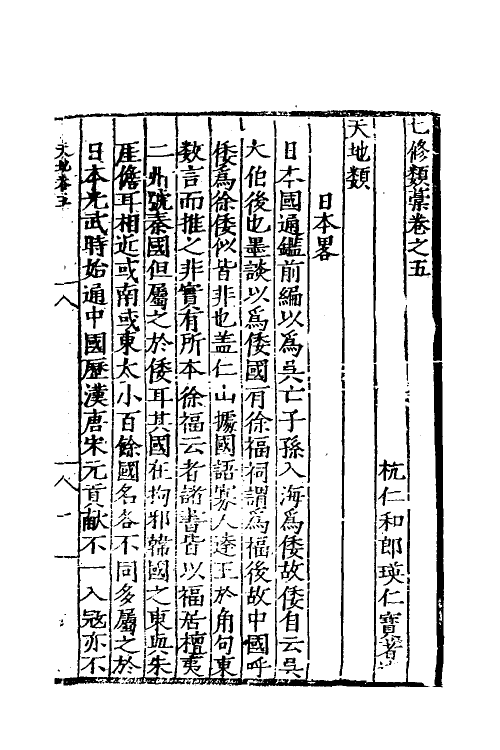 七修類藁卷之五
杭仁和郎瑛仁寶著
天地類
日本畧
日本國通鑑前編以爲吳亡子孫入海爲倭故倭自云吳
大伯後也墨談以爲倭國有徐福祠謂爲福後故中國呼
倭爲徐倭似皆非也盖仁山據國語寡人達王於甬句東
數言而推之非實有所本徐福云者諸書皆以福居檀夷
二州號秦國但屬之於倭耳其國在拘邪韓國之東與朱
厓儋耳相近或南或東大小百餘國名各不同多屬之於
日本光武時始通中國歷漢唐宋元貢献不一入冦亦不
天地卷五